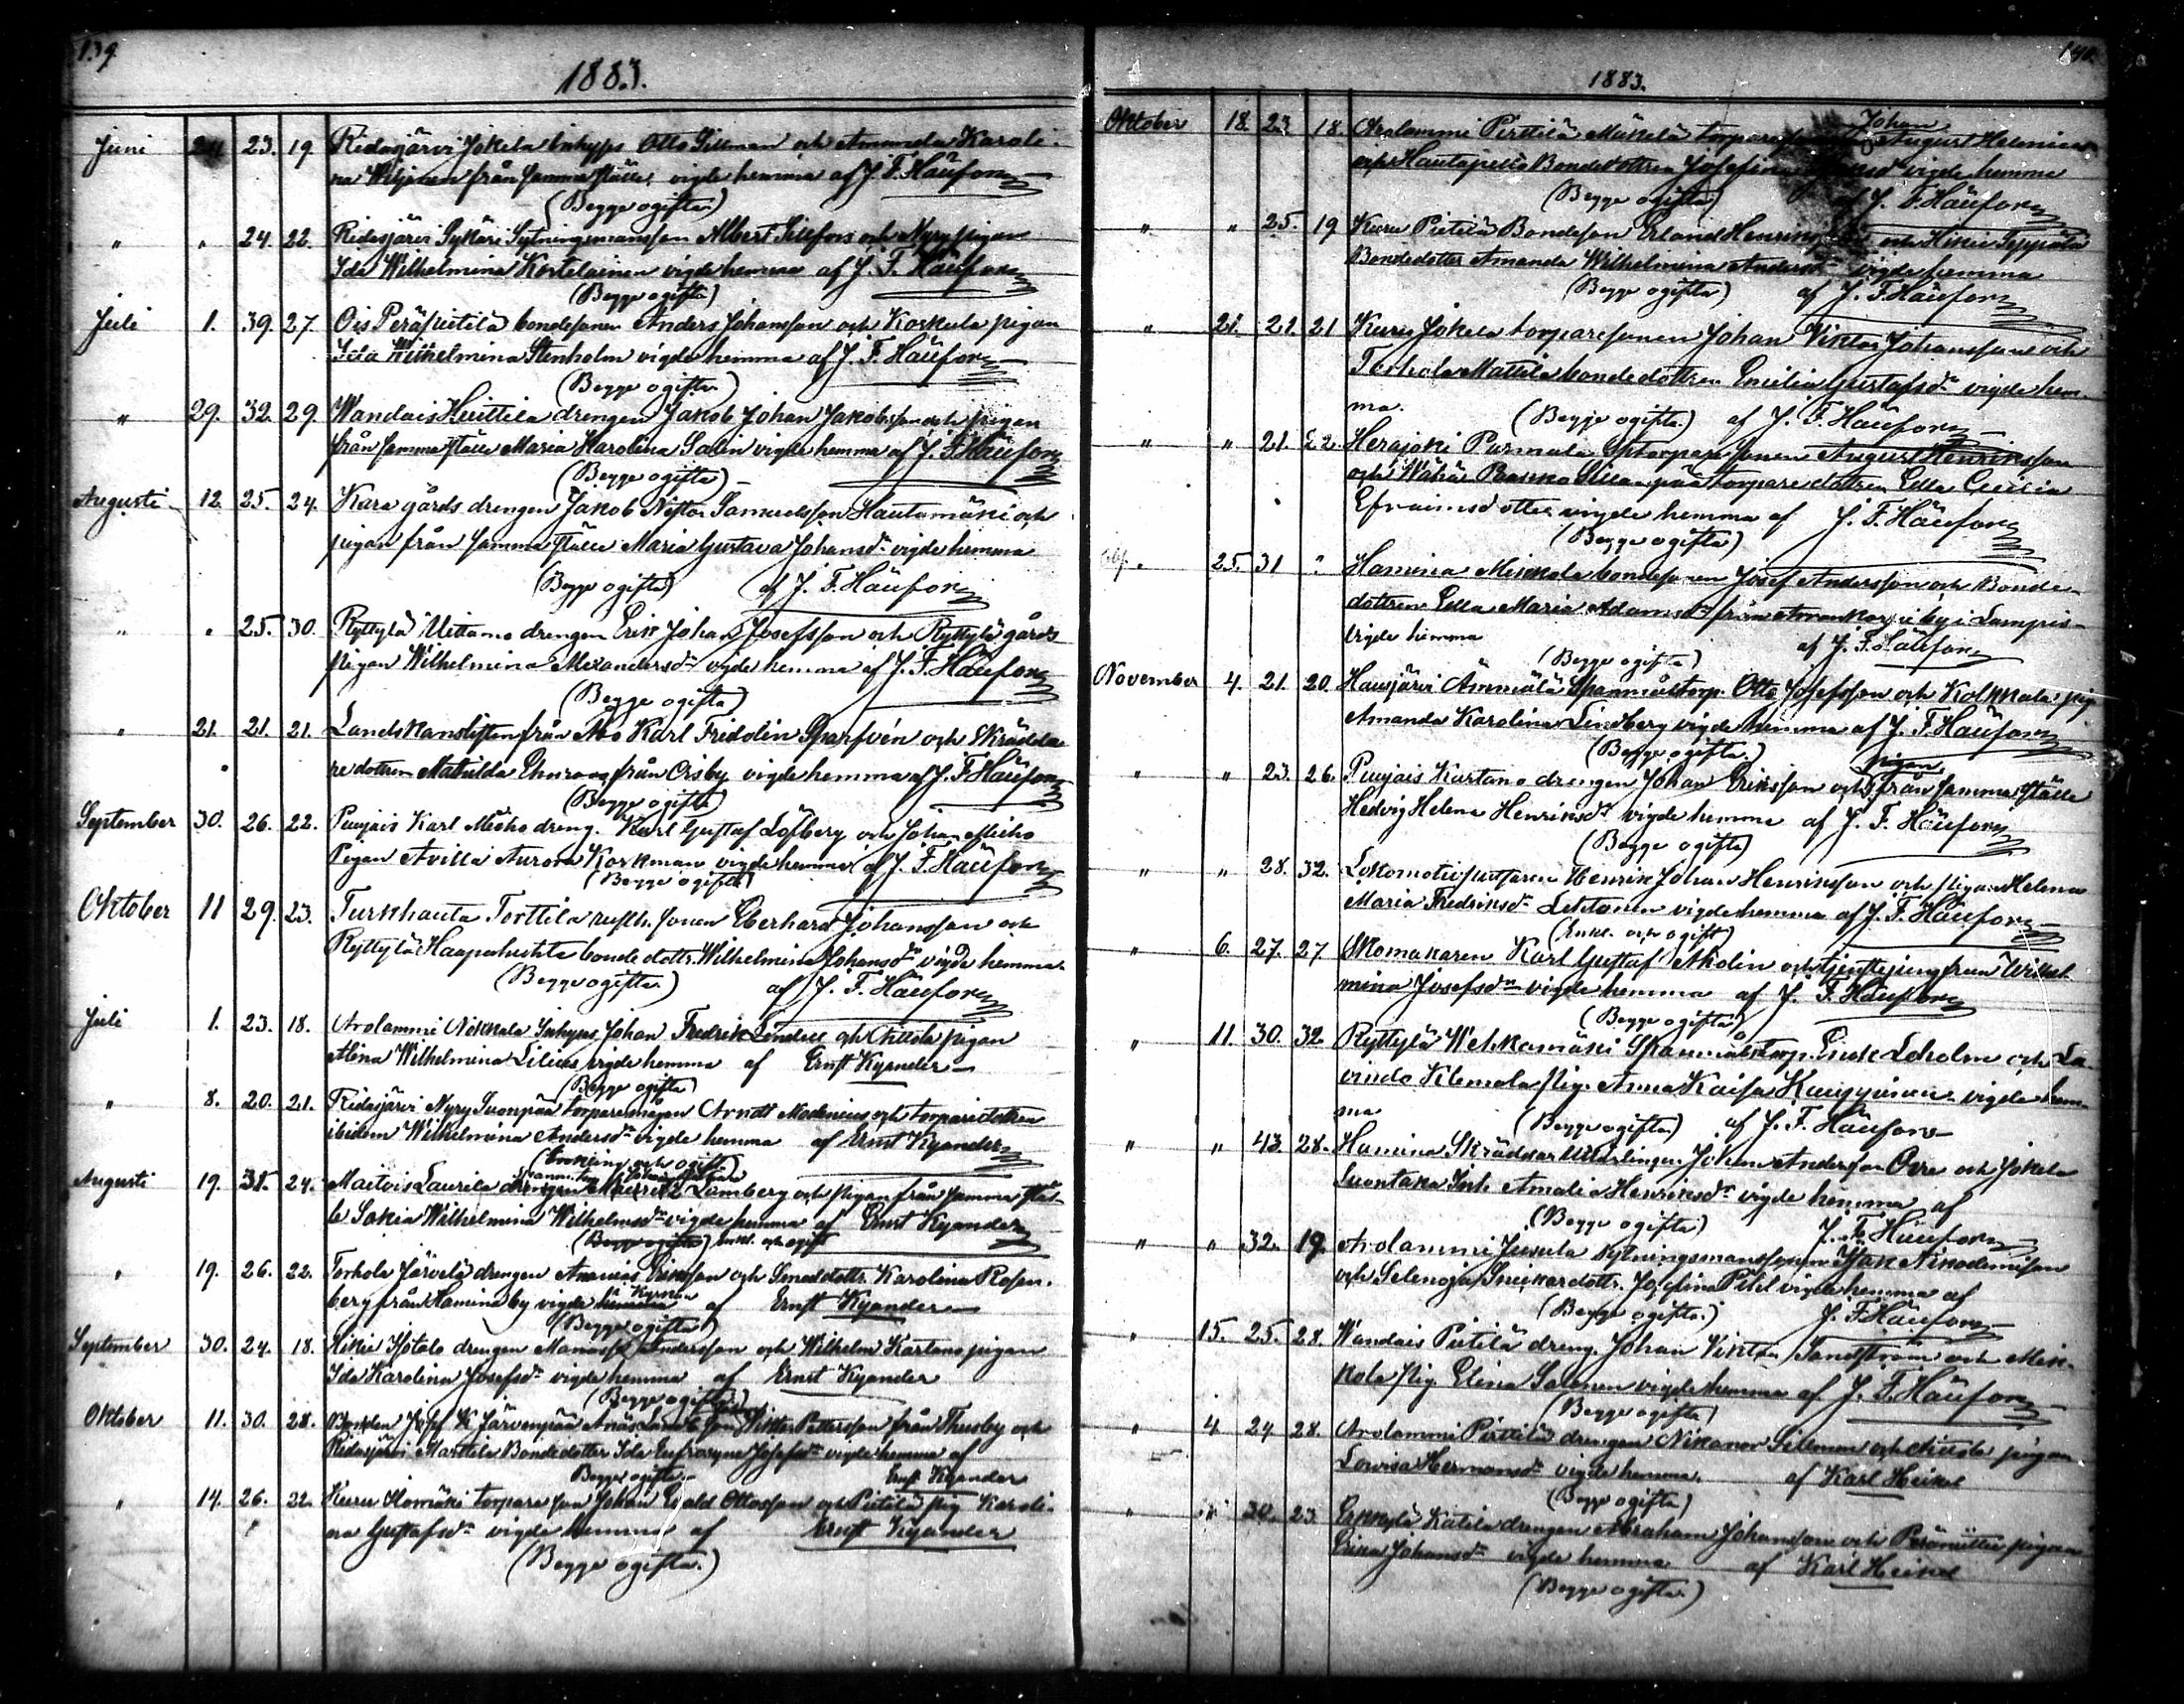 139
1883.
Juni 24 23. 19. Ridasjärvi Jokela Inhyss Otto Sillman och Amanda Karoli-
na Weijonen från samma ställe, vigde hemma af J. F. Häufors
(Begge ogifta)
" " 24. 22. Ridasjärvi Sykäri Sytningsmansson Albert Silefors och Nyry pigan
Ida Wilhelmina Kortelainen vigde hemma af J. F. Häufors
(Begge ogifta)
Juli 1. 39. 27. Ois Peräpietilä bondesonen Anders Johansson och Koskula pigan
Ida Wilhelmina Stenholm vigde hemma af J. F. Häufors
(Begge ogifta)
" 29. 32. 29. Wandais Huittila drengen Jakob Johan Jakobsson och pigan
från samma ställe Maria Karolina Salin vigde hemma af J. F. Häufors
(Begge ogifta)
Augusti 12. 25. 24. Kara gårds drengen Jakob Nestor Samuelsson Hautamäki och
pigan från samma ställe Maria Gustava Johansdr vigde hemma
(Begge ogifta) af J. F. Häufors
" " 25. 30. Ryttylä Uittamo drengen Erik Johan Josefsson och Ryttylä gårds
pigan Wilhelmina Alexandersdr vigde hemma af J. F. Häufors
(Begge ogifta)
" 21. 21. 21. Landskanslisten från Åbo Karl Fridolin Sparfvén och Skrädda-
redottern Mathilda Ehnroos från Oisby vigde hemma af J. F. Häufors
(Begge ogifta)
September 30. 26. 22. Puujais Karl Meiho dreng. Karl Gustaf Löfberg och Johan Meiho
Pigan Avilla Aurora Korkman vigde hemma af J. F. Häufors
(Begge ogifta)
Oktober 11 29. 23. Turkhauta Torttila rusth. sonen Eberhard Johansson och
Ryttylä Haapahuhta bondedottr. Wilhelmina Johansdr vigde hemma
(Begge ogifta) af J. F. Häufors
Juli 1. 23. 18. Arolammi Nikkala Inhyses Johan Fredrik Lindell och pigan
Alina Wilhelmina Lilius vigde hemma af Ernst Kyander
(Begge ogifta)
" 8. 20. 21. Ridasjärvi Nyry Suonpää torparemågen Arndt Modenius och torparedottern
ibidem Wilhelmina Andersdr vigde hemma af Ernst Kyander
(Enkling och ogift)
Augusti 19. 31. 24. Maitois Laurila Lamberg och pigan från samma stäl-
le Sakia Wilhelmina Wilhelmsdr vigde hemma af Ernst Kyander
(Begge ogifta) enkl. och ogift
" 19. 26. 22. Torhola Järvelä drengen Ananias Eriksson och Smeddottr. Karolina Rosen-
berg från Hamina by vigde i Kyrkan af Ernst Kyander
(Begge ogifta)
September 30. 24. 18. Hikiä Isotalo drengen Manasse Andersson och Wilhelm Kartano pigan
Ida Karolina Josefsdr vigde hemma af Ernst Kyander
(Begge ogifta)
Oktober 11. 30. 28. Bonden Josef K. Järvenpää Viktor Pettersson från Thusby och
Ridasjärvi Marttila Bondedotter Ida Eufrosyne Josefsdr vigde hemma af
Begge ogifta Ernst Kyander
" 14. 26. 22. Kuru Alomäki torpareson Johan Evald Ottosson och Pietilä pig. Karoli-
na Gustafsdr vigde hemma af Ernst Kyander
(Begge ogifta.)
140
1883.
Oktober 18. 23 18. Arolammi Pirttilä Mäkelä torpareson Johan August Helenius
och Hautajoki Bondedottren Josefina vigde hemma
(Begge ogifta) af J. F. Häufors
" " 25. 19 Kuru Pietilä Bondeson Erland Henriksson och Hikiä Seppälä
Bondedotter Amanda Wilhelmina Andersdr vigde hemma
(Begge ogifta) af J. F. Häufors
" 21. 21. 21 Kuru Jokela torparesonen Johan Viktor Johansson och
Torhola Mattila bondedottren Emilia Gustafsdr vigde hem-
ma. (Begge ogifta.) af J. F. Häufors
" " 21. 22. Herajoki Parmala torparesonen August Henriksson
och Wähä Raakka Sillanpää torparedottren Edla Cecilia
Efraimsdotter vigde hemma af J. F. Häufors
(Begge ogifta)
25. 31 " Hamina Mikkola bondesonen Josef Andersson och Bonde-
dottren Edla Maria Adamsdr från by i Lampis
vigde hemma af J. F. Häufors
(Begge ogifta)
November 4. 21. 20. Hausjärvi Ämmälä Spannmålstorp. Otto Josefsson och Kolkkala pig
Amanda Karolina Lindberg vigde hemma af J. F. Häufors
(Begge ogifta.)
" " 23. 26. Puujais Kartano drengen Johan Eriksson och pigan från samma ställe
Hedvig Helena Henriksdr vigde hemma af J. F. Häufors
(Begge ogifta)
" " 28. 32. Lokomotivputsaren Henrik Johan Henriksson och pigan Helena
Maria Fredriksdr Lehtonen vigde hemma af J. F. Häufors
(Enkl. och ogift)
" 6. 27. 27 Skomakaren Karl Gustaf Molin och tjenstejungfrun Wilhel-
mina Josefsdr vigde hemma af J. F. Häufors
(Begge ogifta)
" 11. 30. 32. Ryttylä Wehkamäki Spannmålstorp. Erik Loholm och La-
vinto Klemola pig. Anna Kaisa Kauppinen vigde hem-
ma (Begge ogifta) af J. F. Häufors
" " 43. 28. Hamina Skräddar Johan Andersson Öre och Jokela
Suontaka Inh. Amalia Henriksdr vigde hemma af
(Begge ogifta) J. F. Häufors
" " 32. 19. Arolammi Jussila sytningsmanssonen Isak Nikodemusson
och Selenoja Snickardottr. Josefina Pihl vigde hemma af
(Begge ogifta.) J. F. Häufors
" 15. 25. 28. Wandais Pietilä dreng. Johan Viktor Sandström och Mik-
kola pig. Elina Salonen vigde hemma af J. F. Häufors
(Begge ogifta)
" 4 24 28. Arolammi Pirttilä drengen Nikanor Sillman och pigan
Lovisa Hermansdr vigde hemma. af Karl Heikel
(Begge ogifta)
" " 30. 23. Erkkylä Katila drengen Abraham Johansson och pigan
Erika Johansdr vigde hemma af Karl Heikel
(Begge ogifta.)